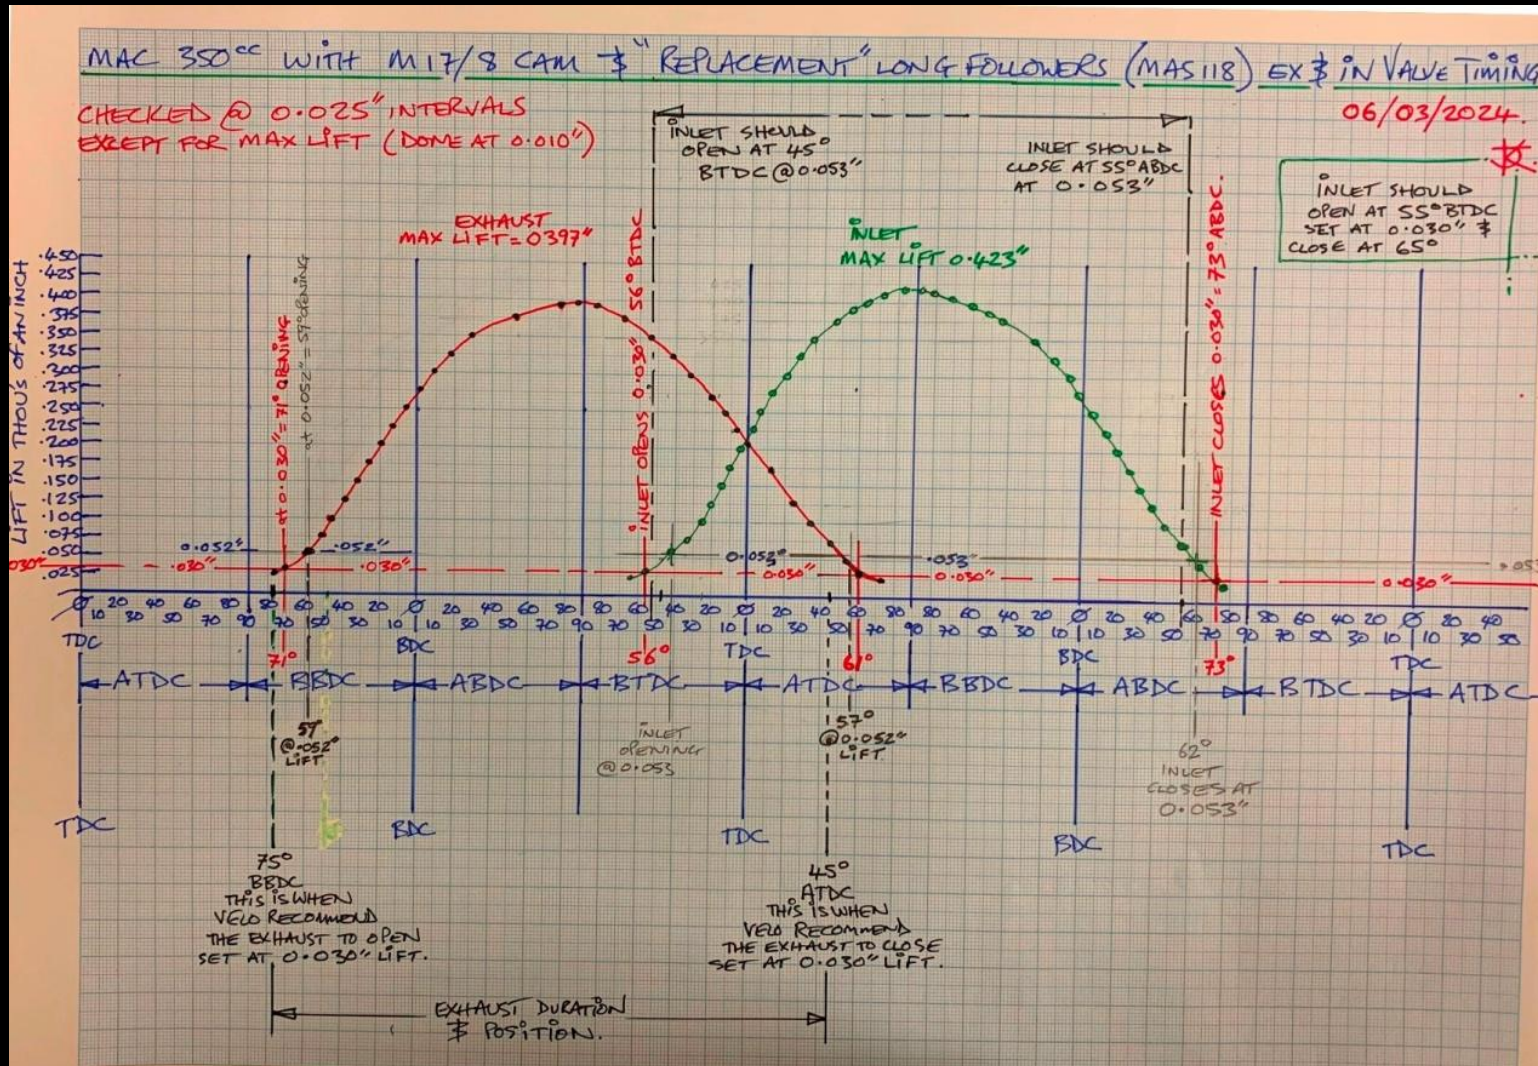 MAC 350cc WITH M17/8 CAM & "REPLACEMENT" LONG FOLLOWERS (MAS118) EX & IN VALVE TIMING
06/03/2024.
CHECKED @ 0.025" INTERVALS
EXCEPT FOR MAX LIFT (DONE AT 0.010")
INLET SHOULD
OPEN AT 45°
BTDC @ 0.053"
INLET SHOULD
CLOSE AT 55° ABDC
AT 0.053"
INLET SHOULD
OPEN AT 55° BTDC
SET AT 0.030" &
CLOSE AT 65°
EXHAUST
MAX LIFT = 0397"
INLET
MAX LIFT 0.423"
LIFT IN THOU'S OF AN INCH
.450
.425
.400
.375
.350
.325
.300
.275
.250
.225
.200
.175
.150
.125
.100
.075
.050
.025
at 0.030" = 71° OPENING
at 0.052" = 59° OPENING
INLET OPENS 0.030" 56° BTDC
INLET CLOSES 0.030" = 73° ABDC.
0.052" .052" 0.053" .053"
.030" .030" 0.030" 0.030" 0.030"
Ø 20 40 60 80 80 60 40 20 Ø 20 40 60 80 80 60 40 20 Ø 20 40 60 80 80 60 40 20 Ø 20 40 60 80 80 60 40 20 Ø 20 40
10 30 50 70 90 70 50 30 10 10 30 50 70 90 70 50 30 10 10 30 50 70 90 70 50 30 10 10 30 50 70 90 70 50 30 10 10 30 50
TDC BDC TDC BDC TDC
71° 56° 61° 73°
ATDC BBDC ABDC BTDC ATDC BBDC ABDC BTDC ATDC
59°
@ 0.052"
LIFT
INLET
OPENING
@ 0.053
57°
@ 0.052"
LIFT.
62°
INLET
CLOSES AT
0.053"
TDC BDC TDC BDC TDC
75°
BBDC
THIS IS WHEN
VELO RECOMMEND
THE EXHAUST TO OPEN
SET AT 0.030" LIFT.
45°
ATDC
THIS IS WHEN
VELO RECOMMEND
THE EXHAUST TO CLOSE
SET AT 0.030" LIFT.
EXHAUST DURATION
& POSITION.